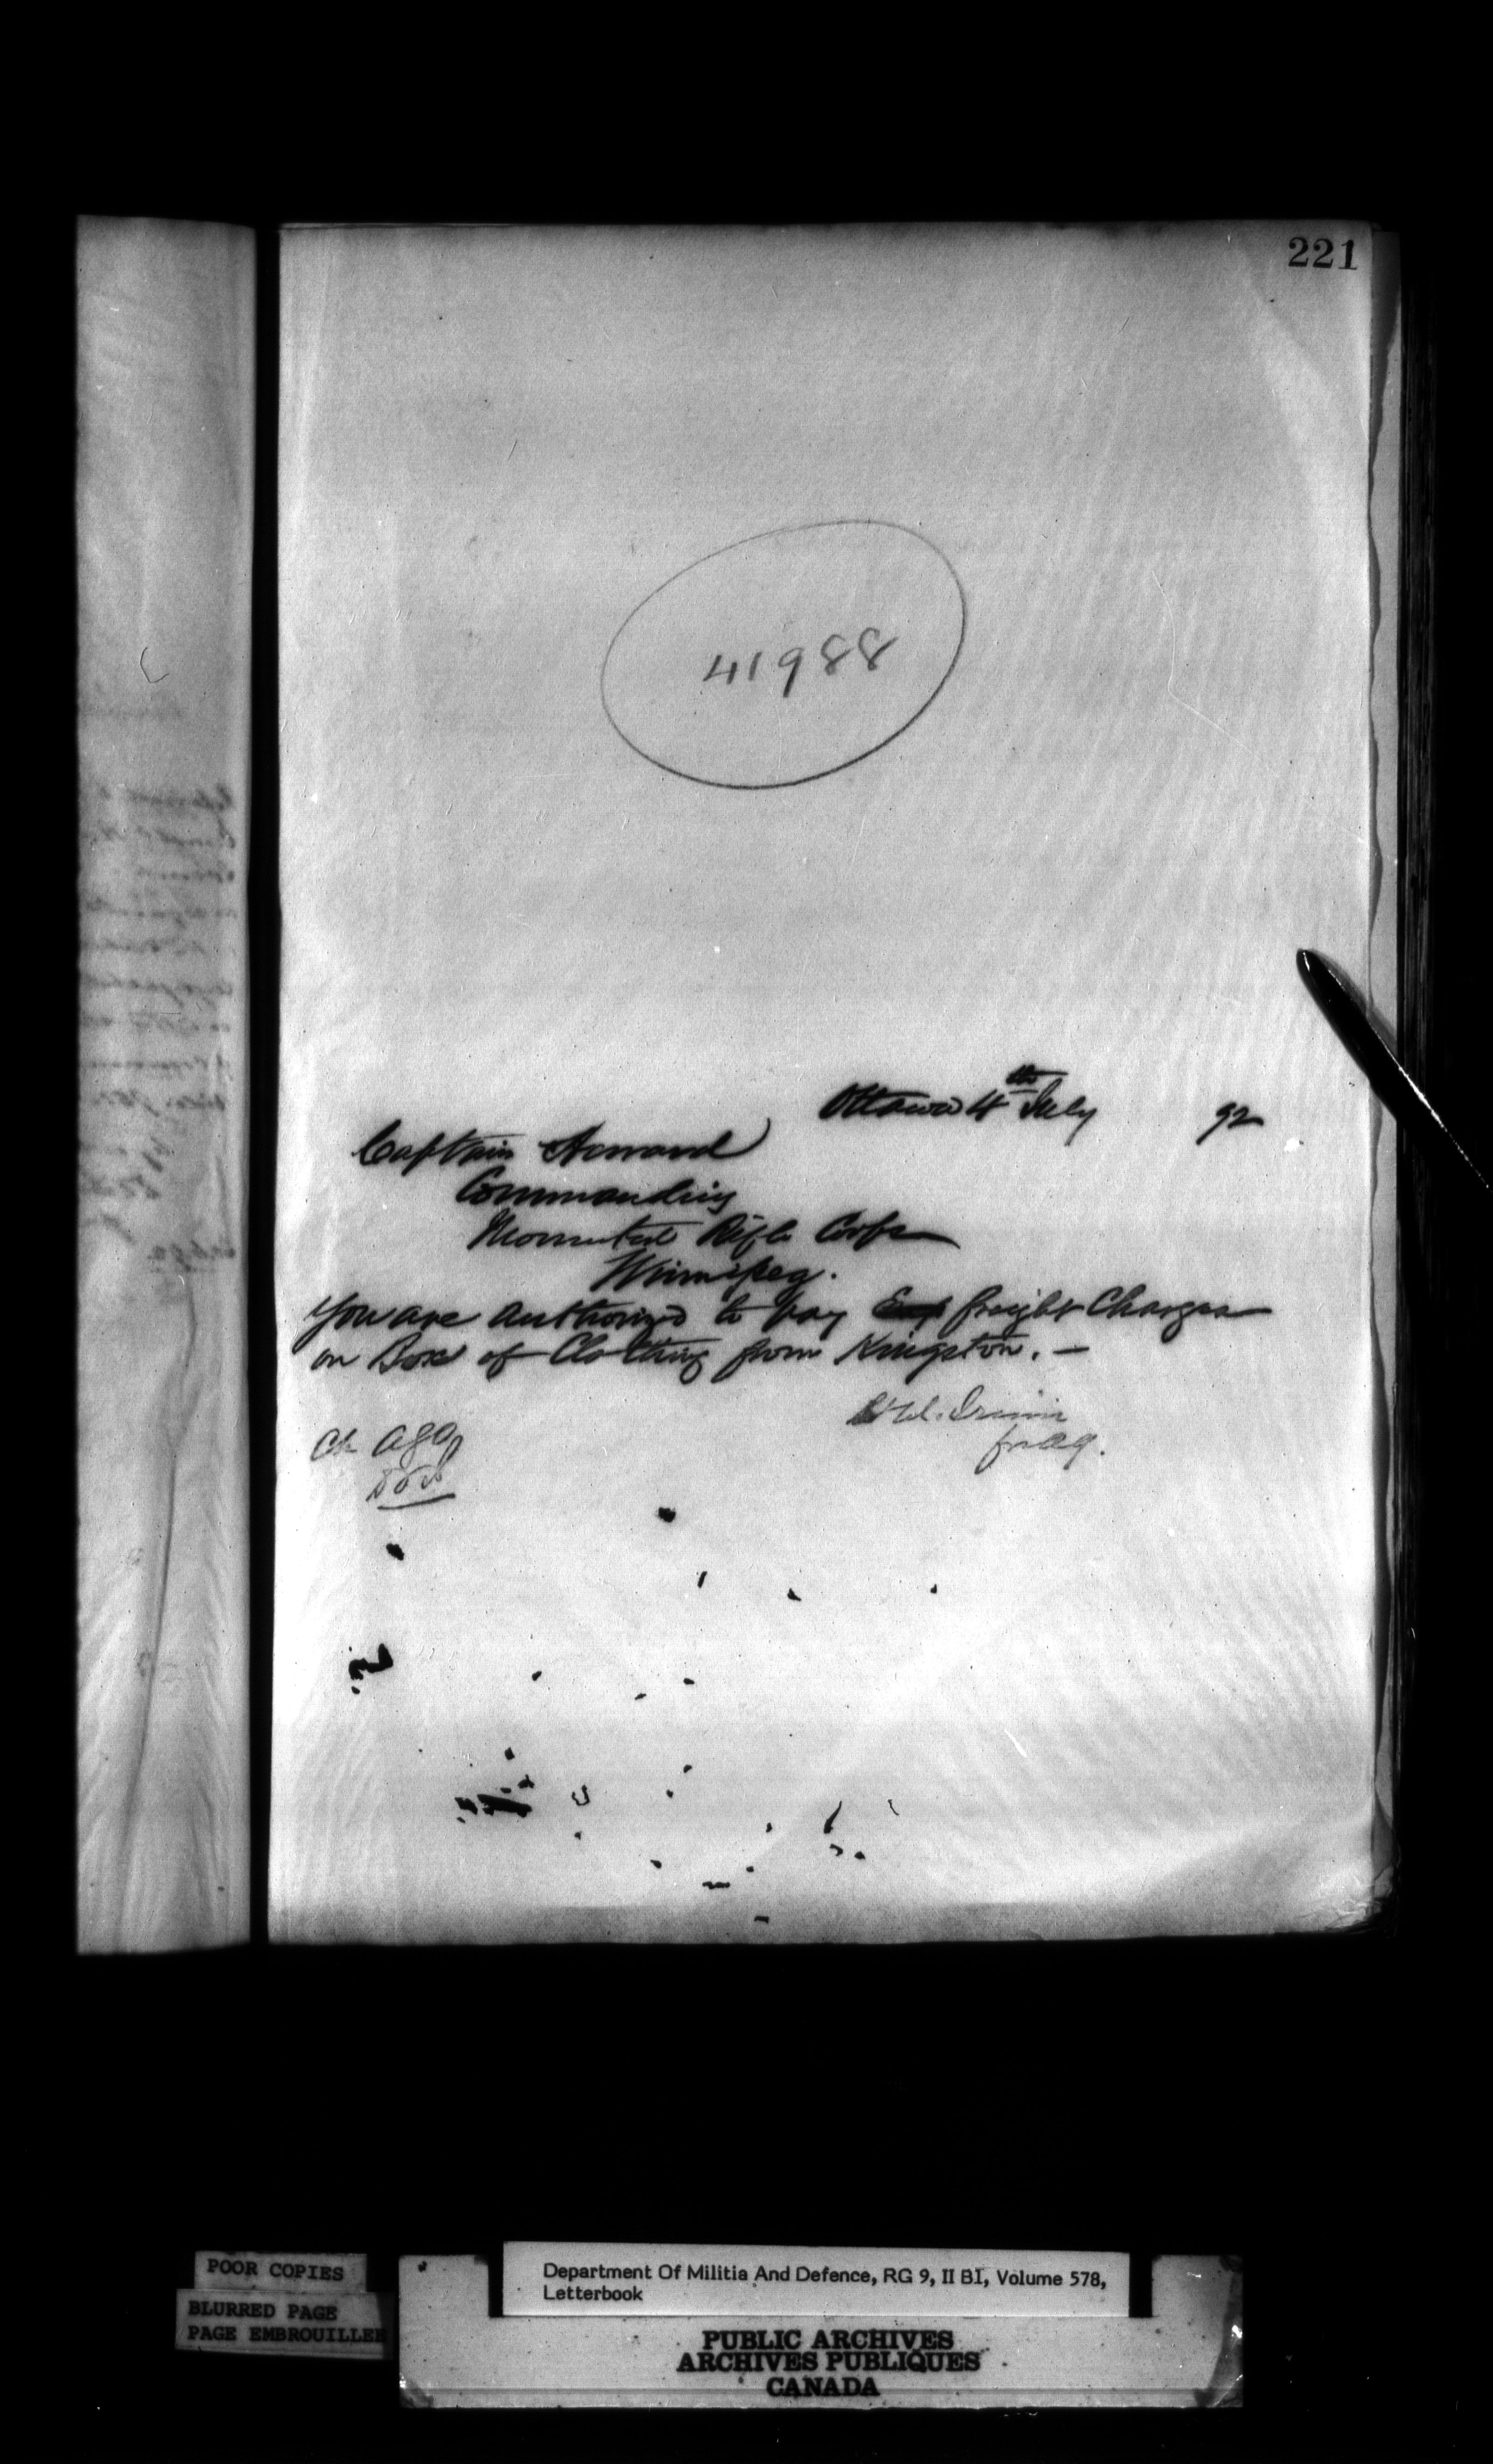 221
41988
Ottawa 4th July 92
Captain
Commanding
Mounted Rifle Corps
Winnipeg.
You are Authorized to pay freight Charges
on Box of Clothing from Kingston. —
for AG.
Ch
POOR COPIES
BLURRED PAGE
PAGE EMBROUILLEE
Department Of Militia And Defence, RG 9, II B1, Volume 578,
Letterbook
PUBLIC ARCHIVES
ARCHIVES PUBLIQUES
CANADA